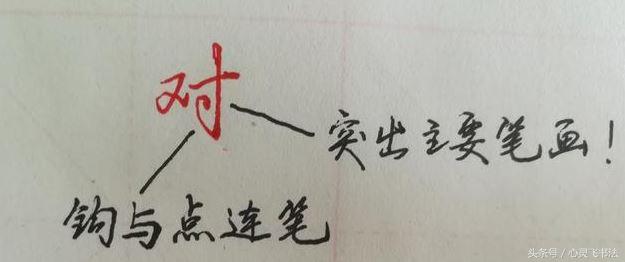 对
突出主要笔画！
钩与点连笔
头条号／心灵飞书法